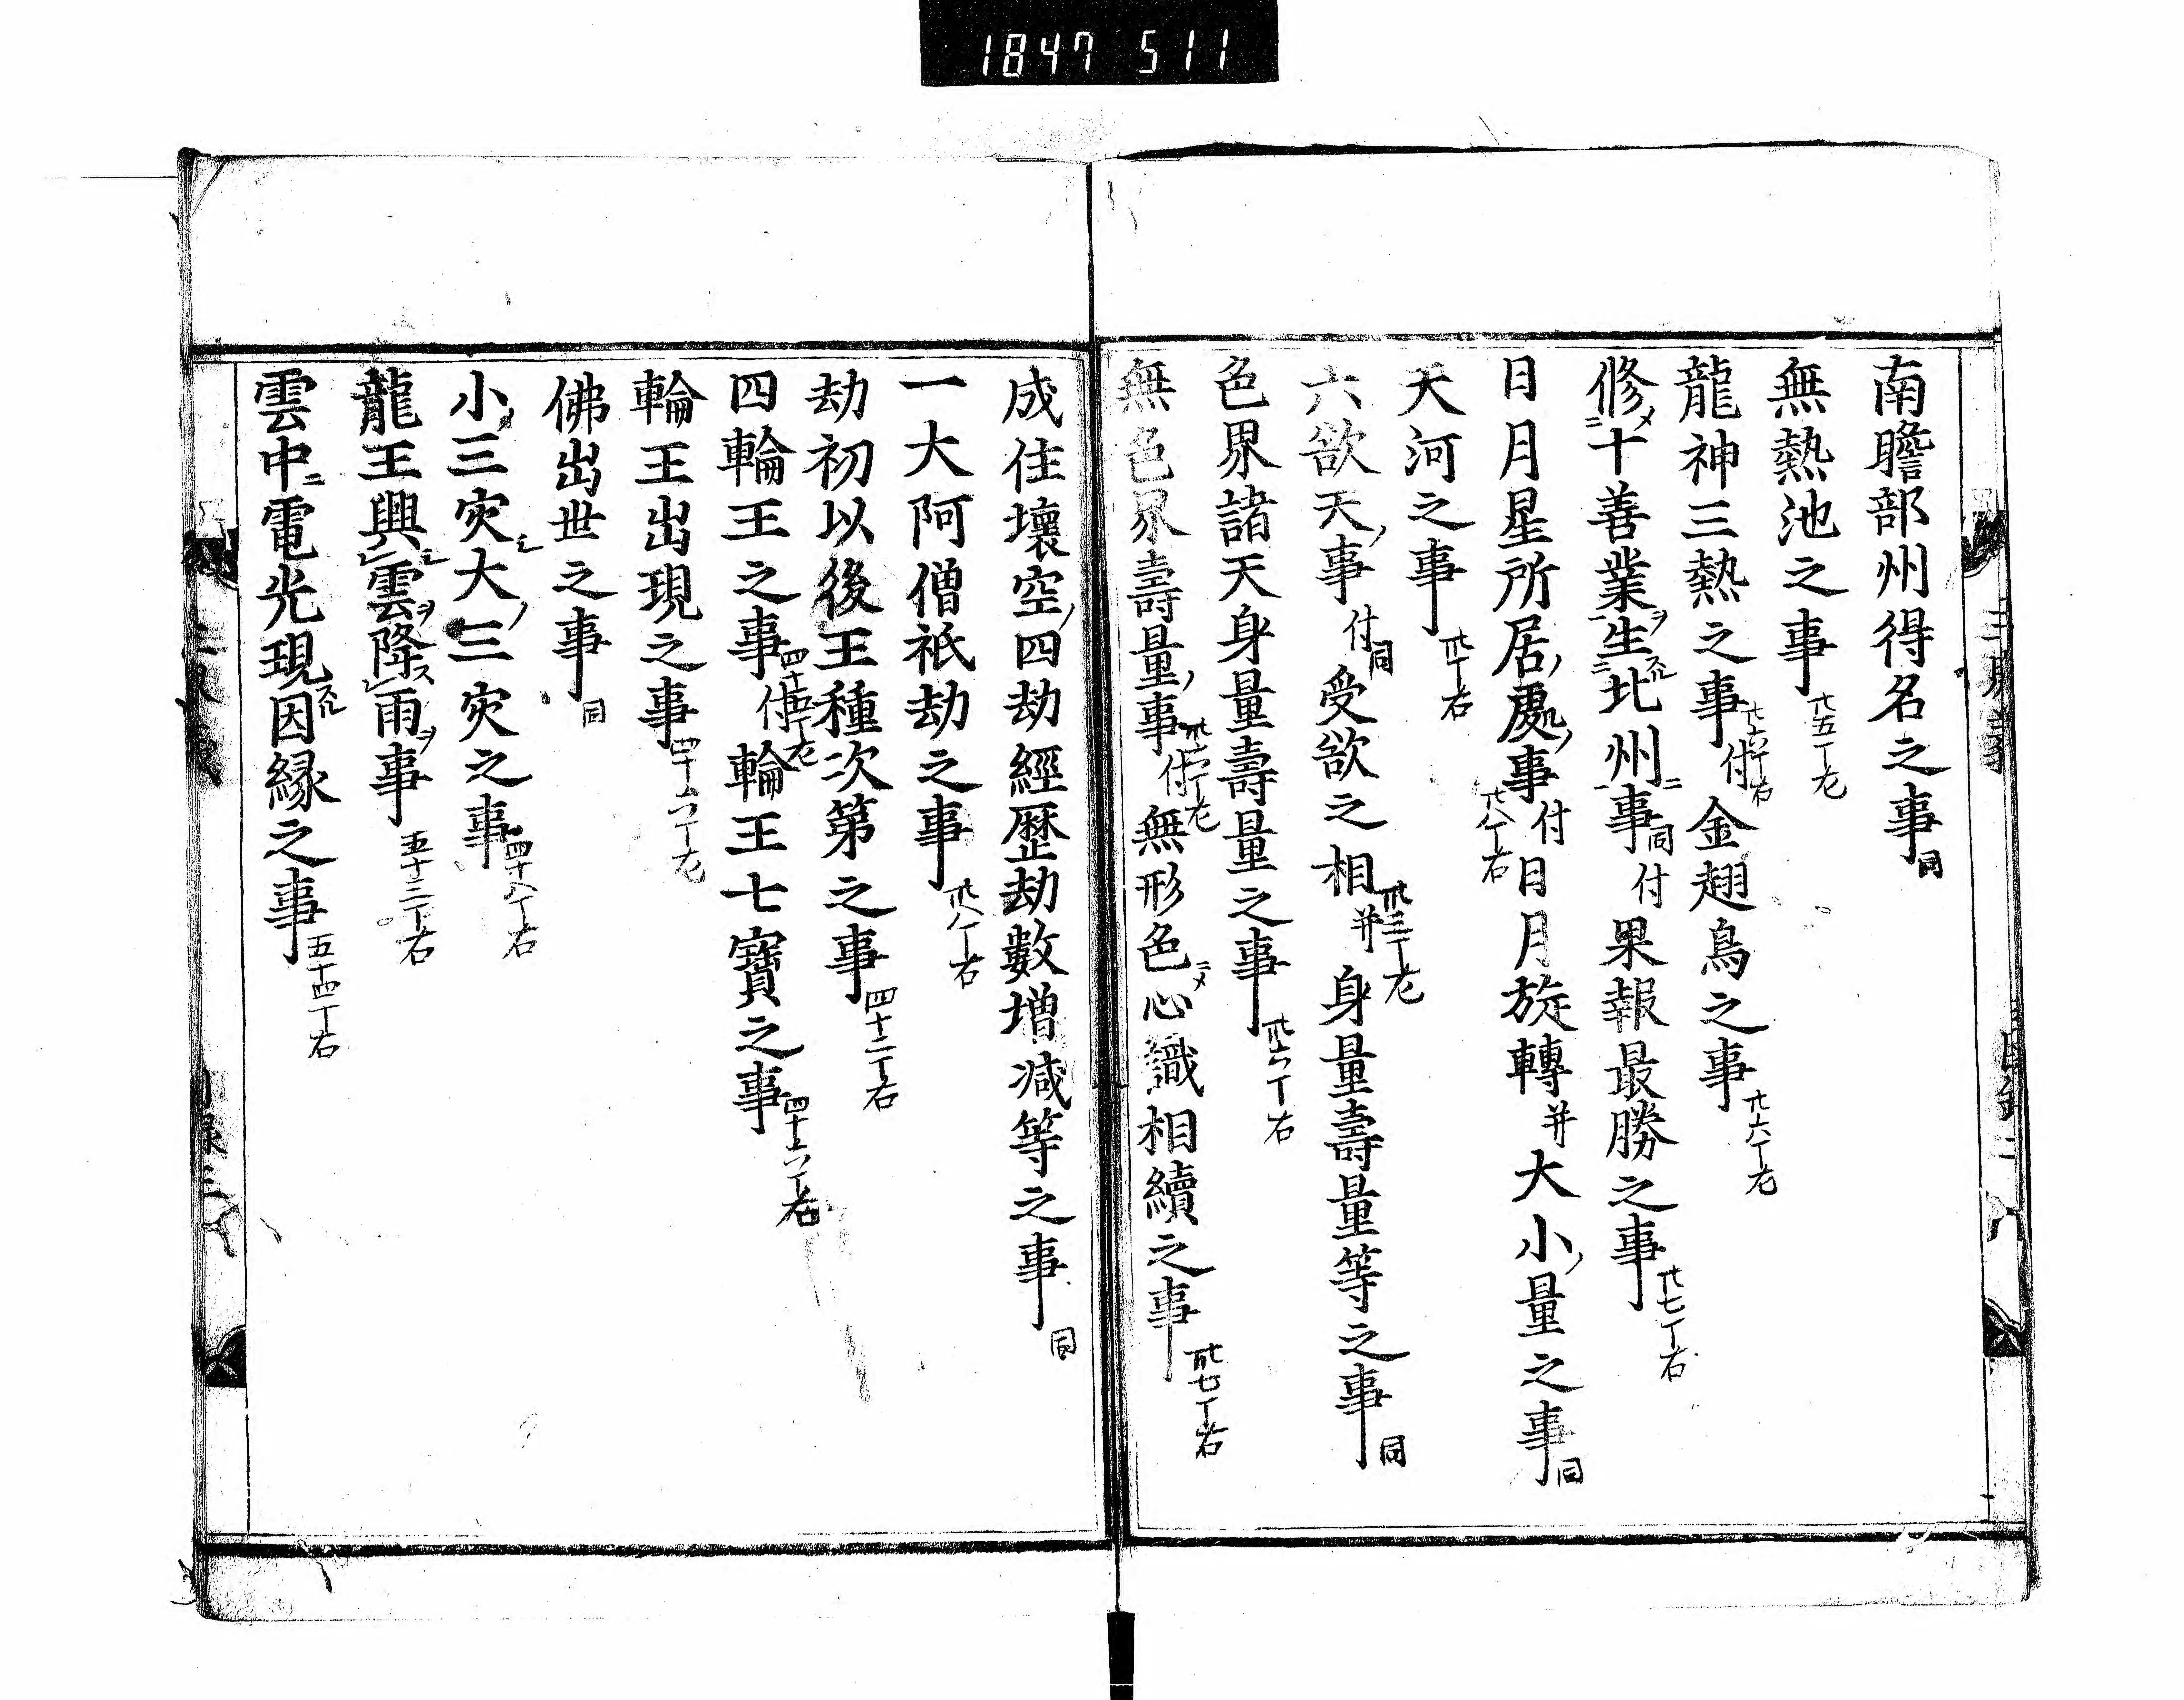 1847 511
南瞻部州得名之事同
無熱池之事廿五丁左
龍神三熱之事廿六丁右付金翅鳥之事廿六丁左
修メ二十善業ヲ一生二スル北州ニ一事同付果報最勝之事廿七丁右
日月星所居ノ處ノ事廿八丁右付日月旋轉并大小ノ量之事同
天河之事卅丁右
六欲天ノ事同付受欲之相卅三丁左并身量壽量等之事同
色界諸天身量壽量之事卅六丁右
無色界壽量ノ事付無形色ニメ心識相續之事卅七丁右
成住壞空ノ四劫經歷劫數増減等之事同
一大阿僧祇劫之事卅八丁右
劫初以後王種次第之事四十二丁右
四輪王之事四十五丁左付輪王七寶之事四十六丁右
輪王出現之事四十六丁左
佛出世之事同
小三灾大ノ三灾之事四十八丁右
龍王興レ雲ヲ降スレ雨ヲ事五十三丁右
雲中ニ電光現スル因縁之事五十四丁右